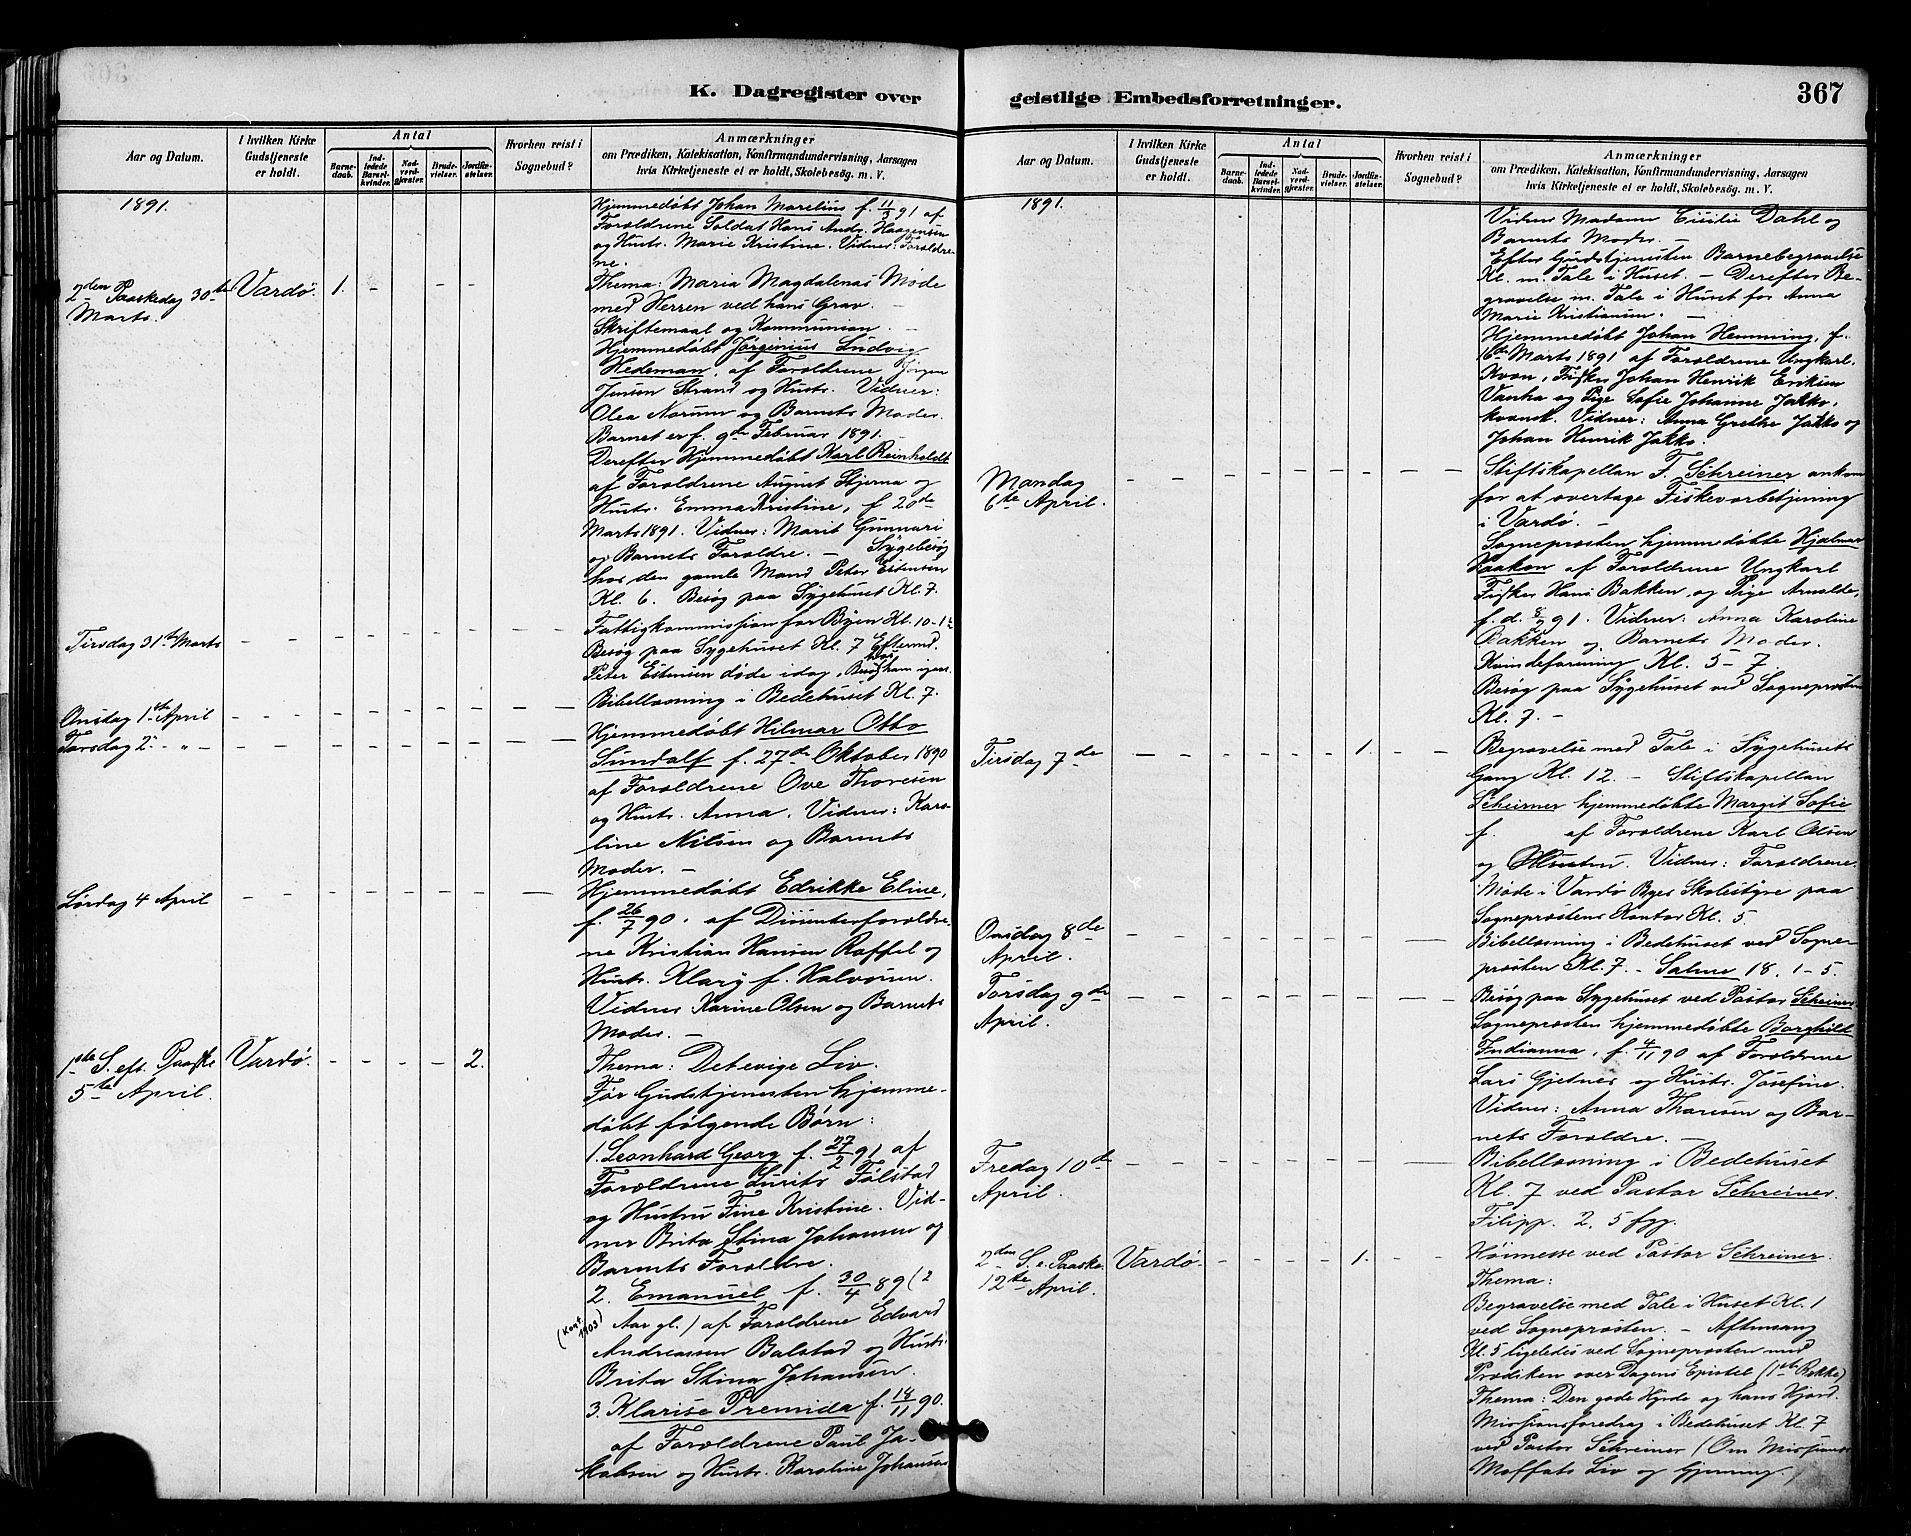 K. Dagregister over
Aar og Datum.
I hvilken Kirke
Gudstjeneste
er holdt.
Antal
Barne-
daab.
Ind-
ledede
Barsel-
kvinder.
Nad-
verd-
gjæster.
Brude-
vielser.
Jordfæ-
stelser.
Hvorhen reist i
Sognebud?
Anmærkninger
om Prædiken, Katekisation, Konfirmandundervisning, Aarsagen
hvis Kirketjeneste ei er holdt, Skolebesøg. m. V.
1891.
Hjemmedøbt Johan Marelius f. 11/3 91 af
Forældrene Soldat Hans Andr. Haagensen
og Hustr. Marie Kristine. Vidner: Forældre-
ne.
2den Paaskedag 30te Vardö. 1. - - - -
Marts.
Thema: Maria Magdalenas Møde
med Herren ved hans Grav. -
Skriftemaal og Kommunion. -
Hjemmedøbt Jørginius Ludvig
Hedeman, af Forældrene Jørgen
Jensen Strand og Hustr. Vidner:
Olea Norum og Barnets Moder.
Barnet er f. 9de Februar 1891. -
Derefter Hjemmedøbt Karl Reinholdt
af Forældrene August Stjerna og
Hustr. Emma Kristine, f 20de
Marts 1891. Vidner: Marit Gunnari
og Barnets Forældre. - Sygebesøg
hos den gamle Mand Peter Estensen
Kl. 6. Besøg paa Sygehuset Kl. 7.
Tirsdag 31te Marts - - - - - - - -
Fattigkommission for Byen Kl. 10-1
Besøg paa Sygehuset Kl. 7 Efterm.
Peter Estensen døde idag, Besøg hos ham igaar.
Onsdag 1ste April - - - - - - - -
Bibellæsning i Bedehuset Kl. 7.
Torsdag 2. - „ - - - - - - - - -
Hjemmedøbt Hilmar Otto
Sundalf f. 27de Oktober 1890
af Forældrene Ove Thoresen
og Hustr. Anna. Vidner: Karo-
line Nilsen og Barnets
Moder. -
Lørdag 4 April - - - - - - - -
Hjemmedøbt Edrikke Eline,
f. 26/7 90. af Dissenterforældre-
ne Kristian Hansen Raffel og
Hustr. Klary f. Halvorsen.
Vidner Karine Olsen og Barnets
Moder. -
1ste S. eft. Paaske Vardö. - - - - 2.
5te April.
Thema: Det evige Liv.
Før Gudstjenesten hjemme-
døbt følgende Børn:
1. Leonhard Georg f. 27/2 91 af
Forældrene Lurits Følstad
og Hustru Fine Kristine. Vid-
ner Brita Stina Johansen og
Barnets Forældre.
2. Emanuel f. 30/4 89 (2
(Konf. 1903) Aar gl.) af Forældrene Edvard
Andreassen Balstad og Hustr.
Brita Stina Johansen.
3. Klarise Premida f. 18/11 90.
af Forældrene Paul Ja-
kobsen og Hustr. Karoline Johansen
geistlige Embedsforretninger.
367
Aar og Datum.
I hvilken Kirke
Gudstjeneste
er holdt.
Antal
Barne-
daab.
Ind-
ledede
Barsel-
kvinder.
Nad-
verd-
gjæster.
Brude-
vielser.
Jordfæ-
stelser.
Hvorhen reist i
Sognebud?
Anmærkninger
om Prædiken, Katekisation, Konfirmandundervisning, Aarsagen
hvis Kirketjeneste ei er holdt, Skolebesøg m. V.
1891.
Vidner Madame Cecilie Dahl og
Barnets Moder. -
Efter Gudstjenesten Barnebegravelse
Kl. m. Tale i Huset. - Derefter Be-
gravelse m. Tale i Huset for Anna
Marie Kristiansen. -
Hjemmedøbt Johan Hemming, f.
16de Marts 1891 af Forældrene Ungkarl
Kvæn, Fisker Johan Henrik Eriksen
Vanha og Pige Sofie Johanne Jakko,
kvænsk. Vidner: Anna Grethe Jakko og
Johan Henrik Jakko.
Mandag - - - - - - - -
6te April.
Stiftskapellan F. Schreiner ankom
for at overtage Fiskeværbetjening
i Vardö. -
Sogneprästen hjemmedøbte Hjalmar
Haakon af Forældrene Ungkarl
Fisker Hans Bakken, og Pige Arnolde,
f. d. 8/2 91. Vidner: Anna Karoline
Bakken og Barnets Moder.
Kvindeforening Kl. 5-7.
Besøg paa Sygehuset ved Sogneprästen
Kl. 7. -
Tirsdag 7de - - - - - 1. - -
Begravelse med Tale i Sygehusets
Gang Kl. 12. - Stiftskapellan
Schreiner hjemmedøbte Margit Sofie
f. af Forældrene Karl Olsen
og Hustru. Vidner: Forældrene.
Møde i Vardö Byes Skolestyre paa
Sogneprästens Kontor Kl. 5
Onsdag 8de - - - - - - - -
April.
Bibellæsning i Bedehuset ved Sogne-
prästen Kl. 7. - Salme 18. 1-5.
Torsdag 9de - - - - - - - -
April.
Besøg paa Sygehuset ved Pastor Schreiner
Sogneprästen hjemmedøbte Borghild
Indianna, f. 4/11 90 af Forældrene
Lars Gjetnes og Hustr. Josefine.
Vidner: Anna Thoresen og Bar-
nets Forældre. -
Fredag 10de - - - - - - - -
April.
Bibellæsning i Bedehuset
Kl. 7 ved Pastor Schreiner.
Filipp. 2. 5 fgg.
2den S. e. Paaske Vardö. - - - - 1. - -
12te April.
Höimesse ved Pastor Schreiner.
Thema:
Begravelse med Tale i Huset Kl. 1
ved Sogneprästen. - Aftensang
Kl. 5 ligeledes ved Sogneprästen med
Prädiken over Dagens Epistel (1ste Række)
Thema: Den gode Hyrde og hans Hjord.
Missionsforedrag i Bedehuset Kl. 7
ved Pastor Schreiner (Om Missionær
Moffats Liv og Gjerning.)